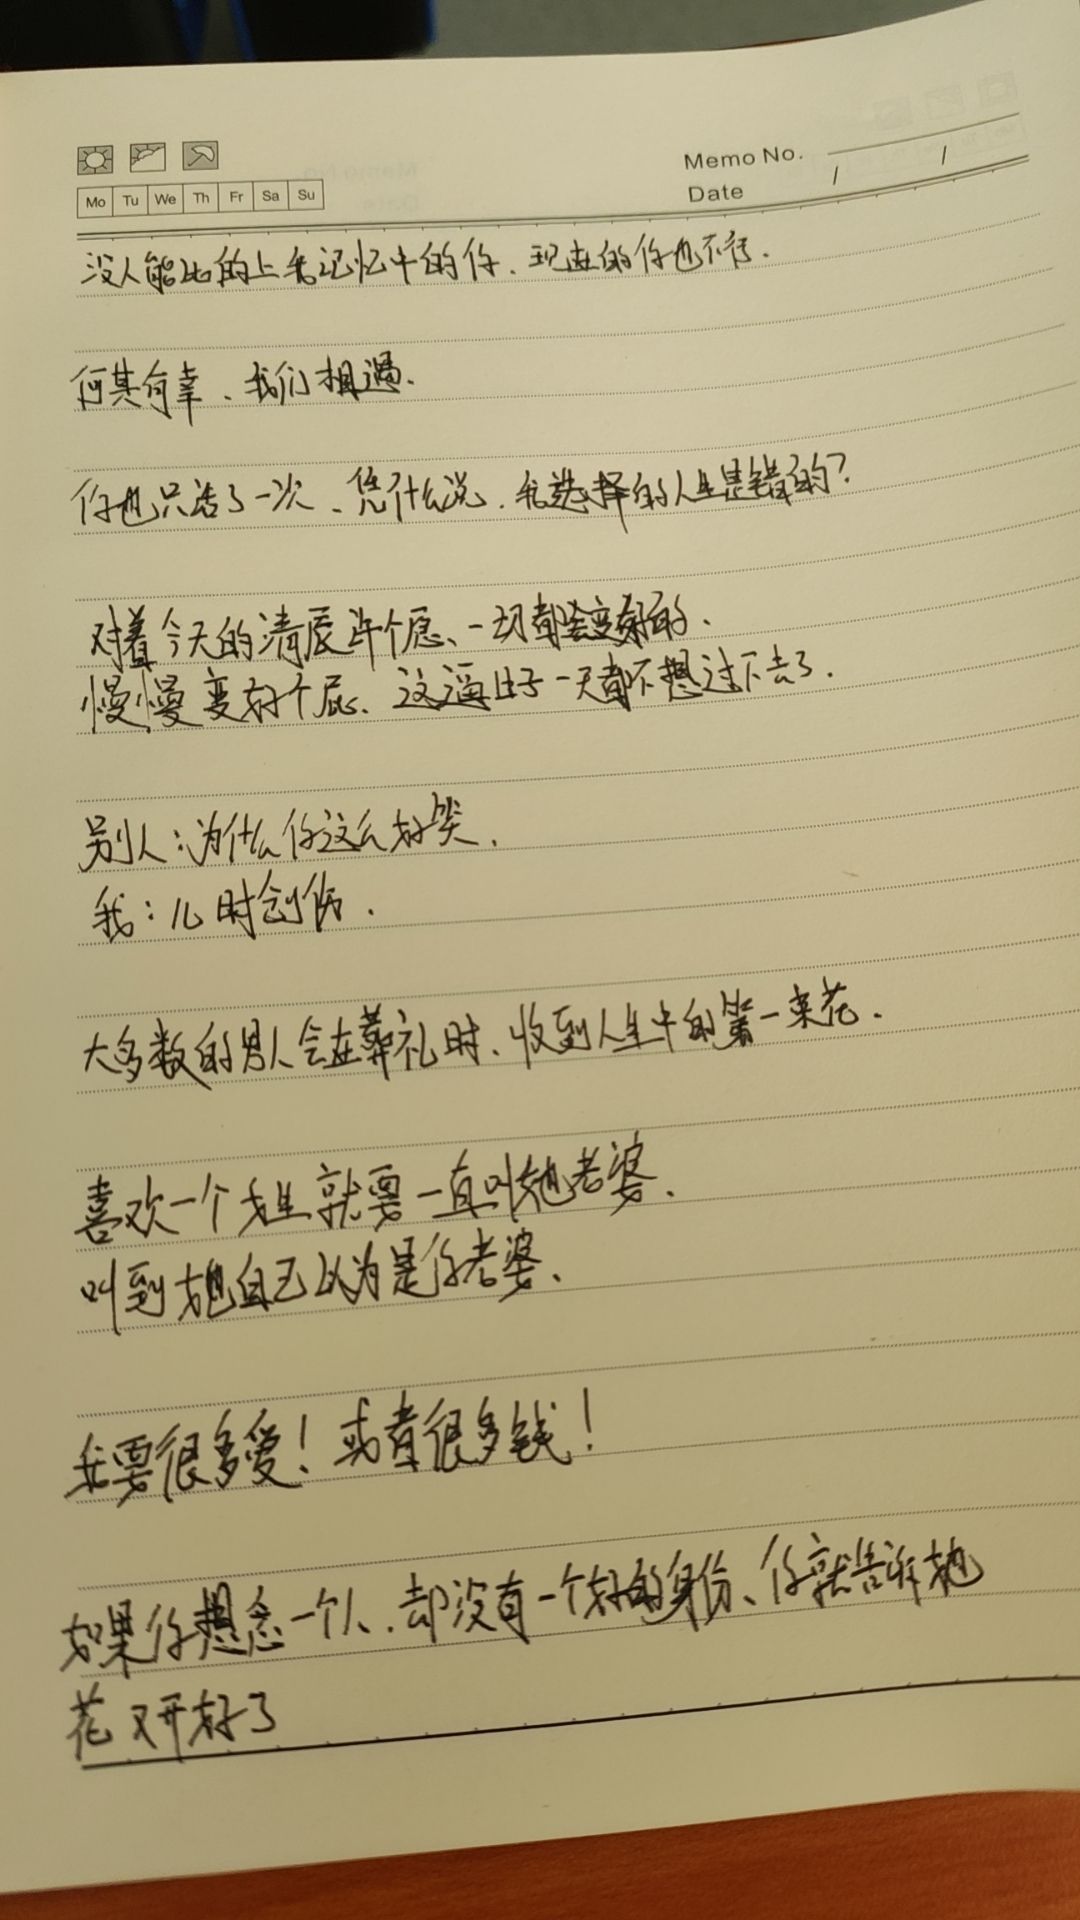 Memo No.
Mo Tu We Th Fr Sa Su
Date / /
没人能比的上我记忆中的你、现在的你也不行.
何其有幸、我们相遇.
你也只活了一次、凭什么说.我选择的人生是错的?
对着今天的清晨许个愿、一切都会变好的.
慢慢变好个屁、这逼日子一天都不想过下去了.
别人:为什么你这么好笑.
我:儿时创伤.
大多数的男人会在葬礼时、收到人生中的第一束花.
喜欢一个女生就要一直叫她老婆.
叫到她自己以为是你老婆、
我要很多爱!或者很多钱!
如果你想念一个人、却没有一个好的身份、你就告诉她
花又开好了